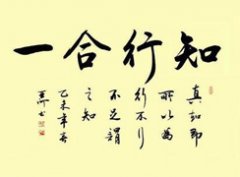 知行合一
真知即
所以為
行不行
不足謂
之知
乙未年
書